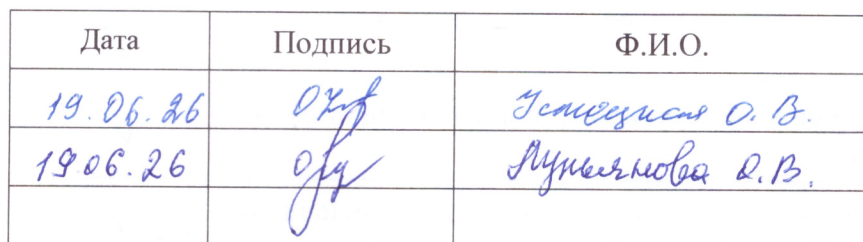 Дата Подпись Ф.И.О.
19.06.26 О.В.
19.06.26 Лукьянова О.В.